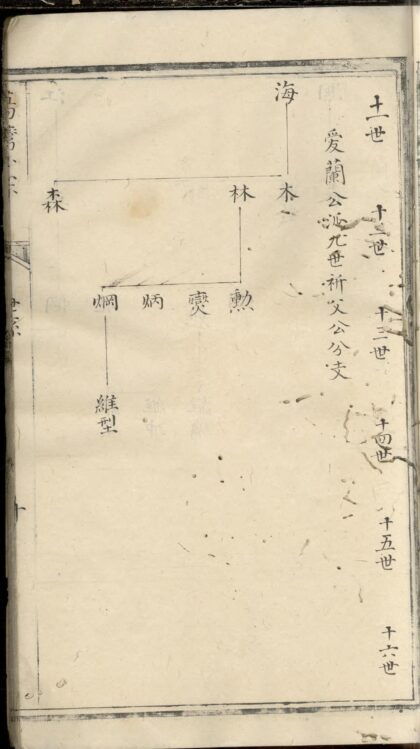 十一世
十二世
十三世
十四世
十五世
十六世
愛蘭公派九世祈父公分支
海
木
林
森
勳
燮
炳
烱
維型
世系
十